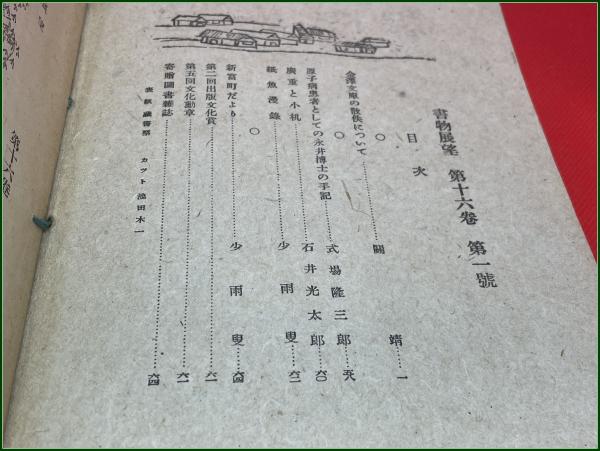 書物展望 第十六巻 第一號
目次
○
金澤文庫の散佚について……關靖……一
○
原子病患者としての永井博士の手記……式場隆三郎……五八
廣重と小机……石井光太郎……六〇
紙魚漫錄……少雨叟……六二
○
新富町だより……少雨叟……六四
第二回出版文化賞……六一
第五回文化勳章……六一
寄贈圖書雜誌……六四
表紙 カツト 池田木一